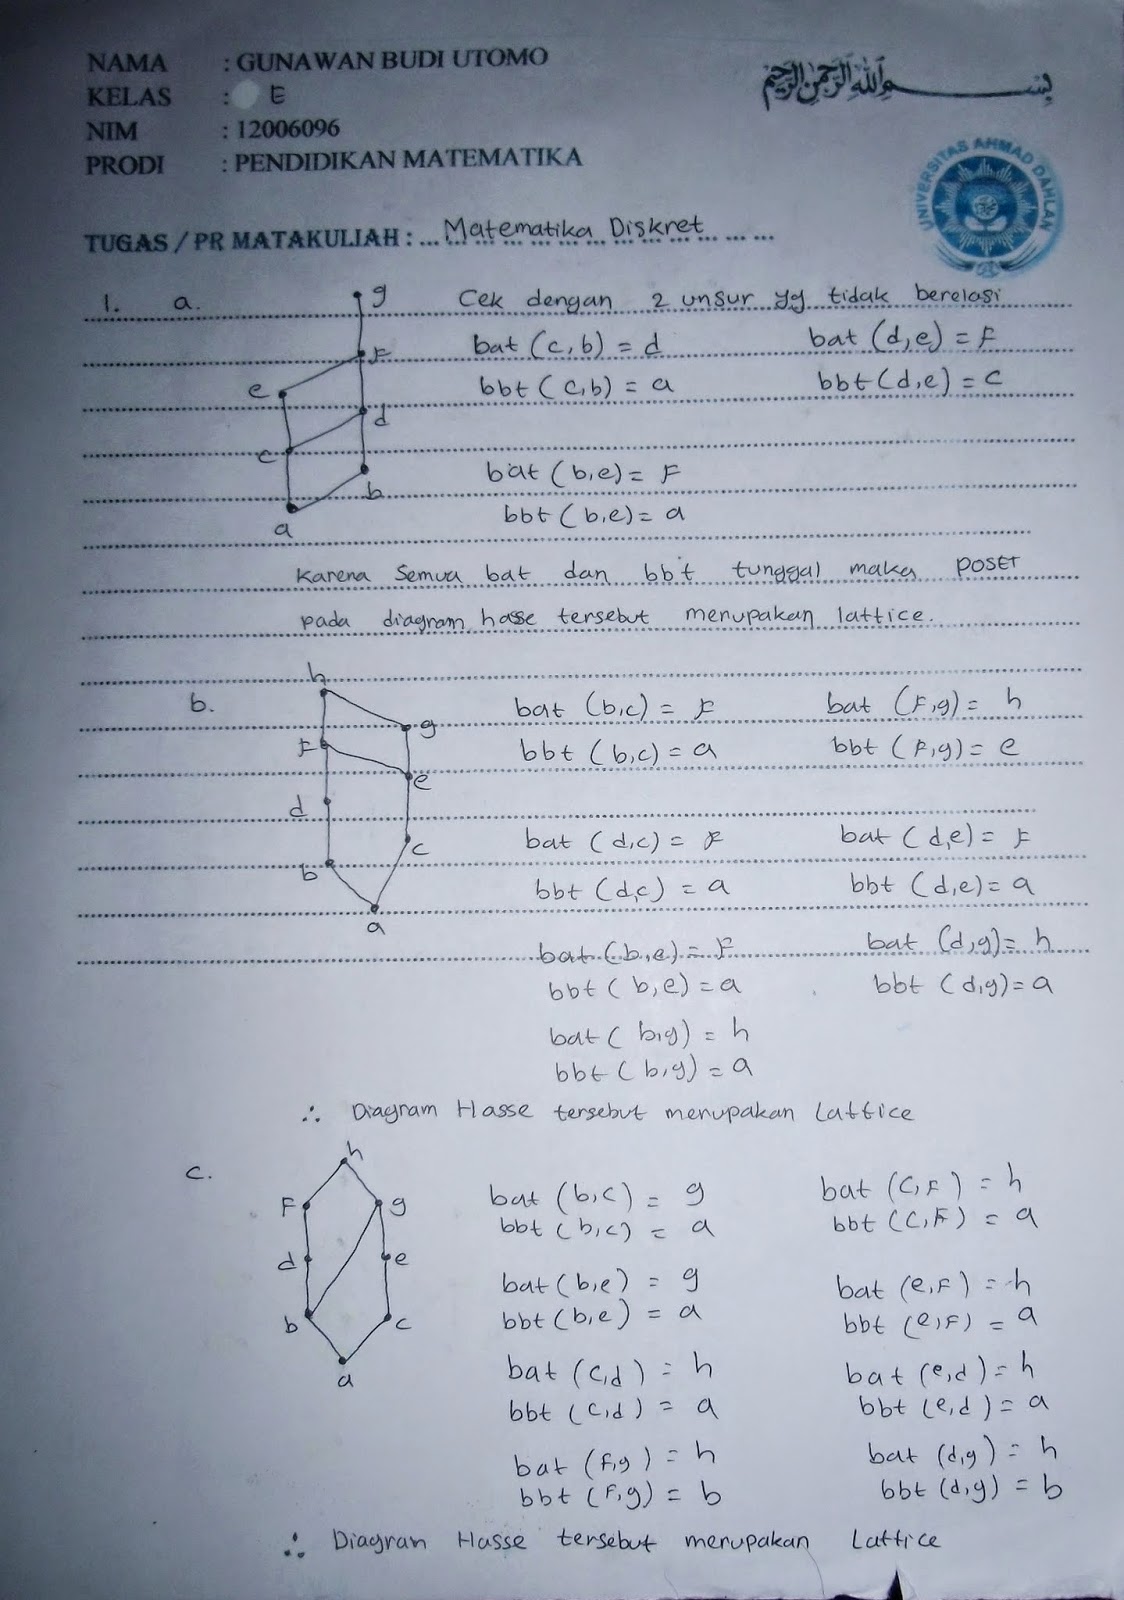 NAMA : GUNAWAN BUDI UTOMO
KELAS : E
NIM : 12006096
PRODI : PENDIDIKAN MATEMATIKA
بِسْمِ اللهِ الرَّحْمٰنِ الرَّحِيْمِ
UNIVERSITAS AHMAD DAHLAN
TUGAS / PR MATAKULIAH : ... Matematika Diskret
1. a.
g
F
e
d
c
b
a
Cek dengan 2 unsur yg tidak berelasi
bat (c,b) = d bat (d,e) = F
bbt (c,b) = a bbt (d,e) = c
bat (b,e) = F
bbt (b,e) = a
Karena semua bat dan bbt tunggal maka poset
pada diagram hasse tersebut merupakan lattice.
b.
h
g
F
e
d
c
b
a
bat (b,c) = F bat (F,g) = h
bbt (b,c) = a bbt (F,g) = e
bat (d,c) = F bat (d,e) = F
bbt (d,c) = a bbt (d,e) = a
bat (b,e) = F bat (d,g) = h
bbt (b,e) = a bbt (d,g) = a
bat (b,g) = h
bbt (b,g) = a
∴ Diagram Hasse tersebut merupakan Lattice
c.
h
F g
d e
b c
a
bat (b,c) = g bat (c,F) = h
bbt (b,c) = a bbt (c,F) = a
bat (b,e) = g bat (e,F) = h
bbt (b,e) = a bbt (e,F) = a
bat (c,d) = h bat (e,d) = h
bbt (c,d) = a bbt (e,d) = a
bat (F,g) = h bat (d,g) = h
bbt (F,g) = b bbt (d,g) = b
∴ Diagran Hasse tersebut merupakan Lattice